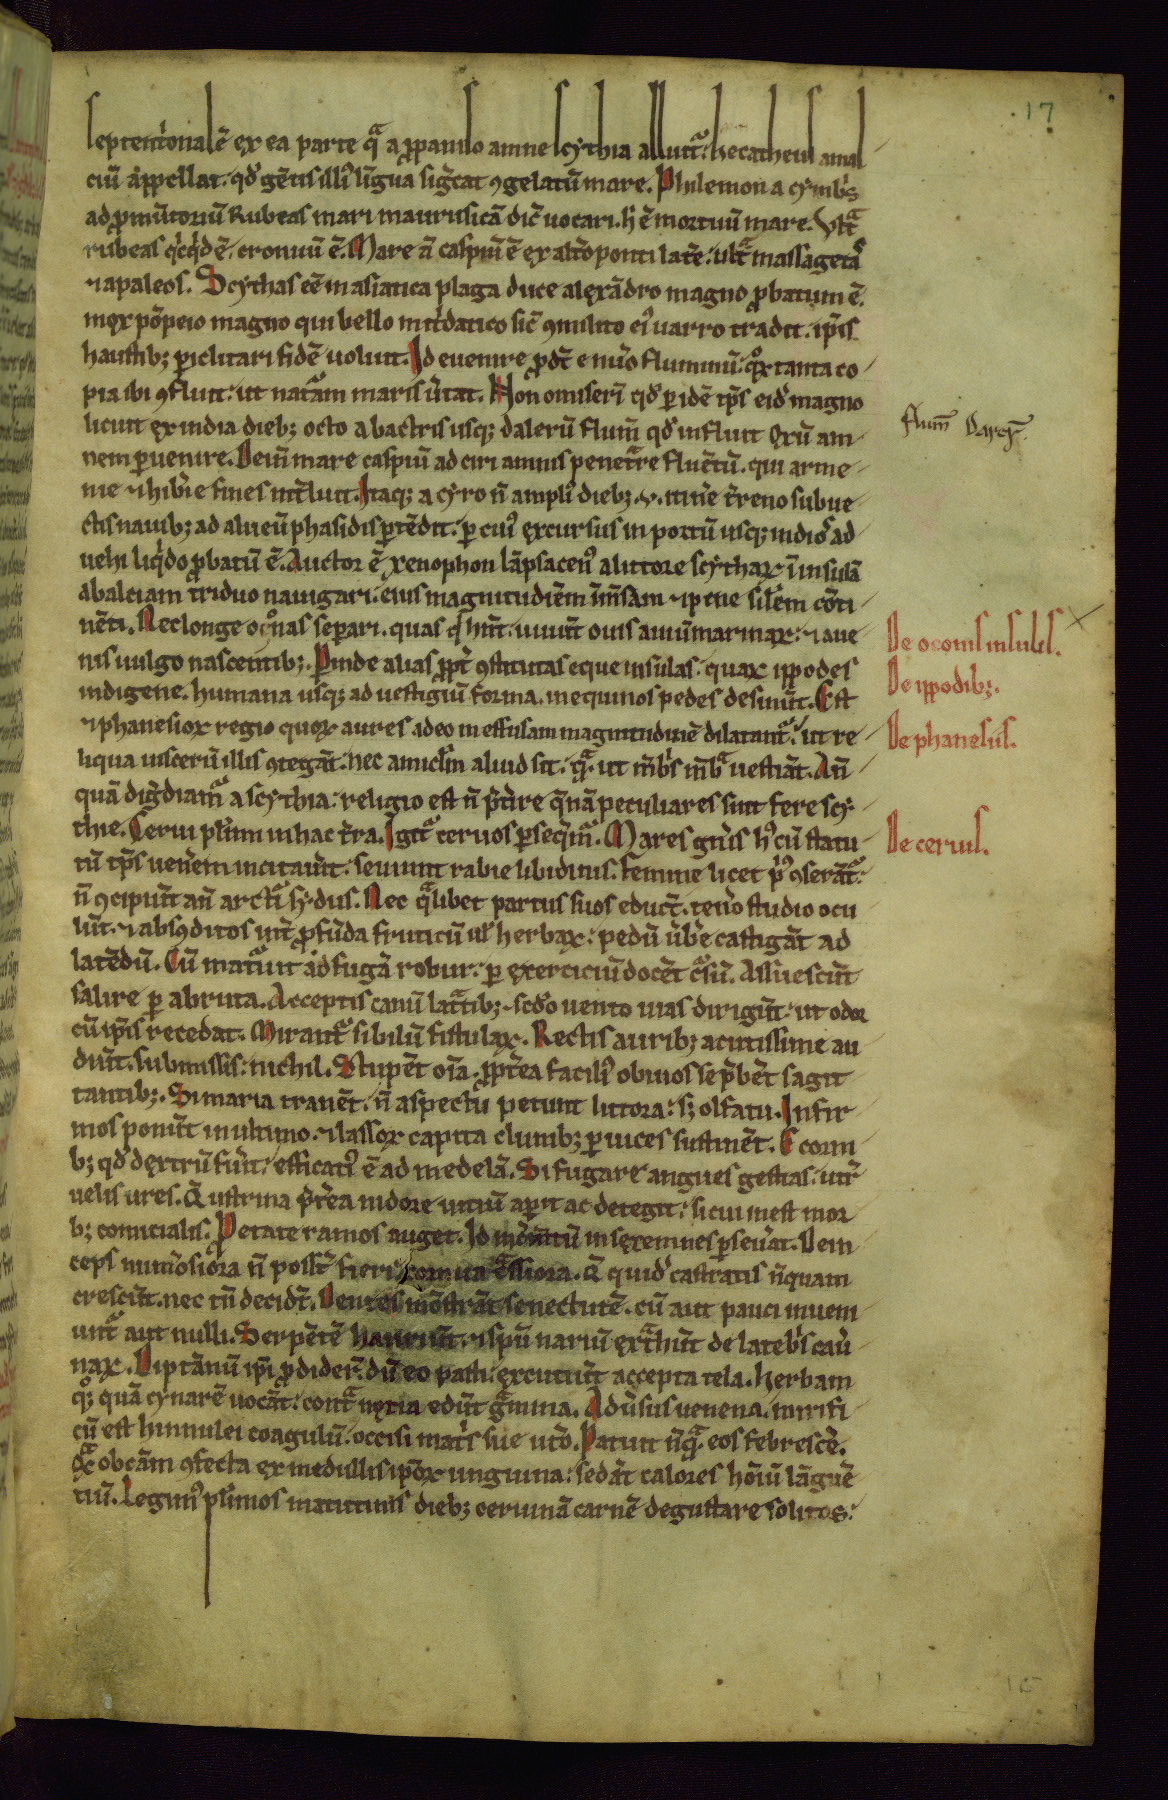 17
septent'onalē ex ea parte qͣ a ꝓpaniso amne scythia alluitᷣ. hecatheus amal
ciū appellat. qd' gētis illiꝰ lingua sig̃cat ꝯgelatū mare. Philemon a cymbͥs
ad ꝓmūtoriū Rubeas mari maurusicā dic̄ uocari. h̄ ē mortuū mare. Vltͣ
rubeas qͥcqͥd ē. cronium ē. Mare aū caspiū ē ex alt̄o ponti lat̄e. ultͣ massagetaˢ
⁊ apaleos. Scythas eē in asiatica plaga duce alexādro magno ꝓbatum ē.
mox pōpeio magno qui bello mit̄datico sic̄ ꝯmilito eiꝰ uarro tradit. ip̄is
haustibꝫ ꝑiclitari fidē uoluit. Id euenire ꝓdt̄ e nūo fluminū. qͦꝝ tanta co
pia ibi ꝯfluit. ut natᷣam maris ūtat. Non omiserī qd' ꝑ idē tp̄s eid' magno
licuit ex india diebꝫ octo a bactris usqꝫ dalerū flum̄ qd' influit oxū am
nem ꝑuenire. Dein̄ mare caspiū ad ciri amnis penetͣre fluētū. qui arme
nie ⁊ hib̄ie fines int̄luit. Itaqꝫ a cyro n̄ ampliꝰ diebꝫ .v. itin̄e t̄reno subue
ctis nauibꝫ ad alueū phasidis ꝑtēdit. ꝑ cuiꝰ excursus in pontū usqꝫ indiaꝫ ad
uehi liqͥdo ꝓbatū ē. Auctor ē xenophon lāpsacenꝰ a littore scythaꝝ ī insulā
abalciam triduo nauigari. eius magnitudiēm īm̄sam ⁊ ip̄ene sil'em cōti
nēti. Nec longe oᷣonas seꝑari. quas q̄ hn̄t. uiuūt ouis auiū marinaꝝ. ⁊ aue
nis uulgo nascentibꝫ. Pinde alias ꝓpt̄ ꝯstitutas eque insulas. quaꝝ ippodes
indigene. humana usqꝫ ad uestigiū forma. in equinos pedes desinūt. Est
⁊ phanesioꝝ regio quoꝝ aures adeo in effusam magnitudinē dilatantᷣ. ut re
liqua uiscerū illis ꝯtegāt. nec amicl'm aliud sit. qͣ. ut mēbͥs mēbͣ uestiāt. An̄
quā dig̃diamᷣ a scythia. religio est n̄ p̄t̄ire q̄nā peculiares sint fere scy
thie. Cerui pl'imi in hac t̄ra. Igitᷣ ceruos ꝑseqͥmᷣ. Mares gn̄is hꝰ cū statu
tū tp̄s uen̄em incitauͥt. seuiunt rabie libidinis. Femine licet pͥꝰ ꝯserātᷣ.
n̄ ꝯcipiūt an̄ arctͥ sydus. Nec qͣlibet partus suos educūt. ten̄o studio ocu
lūt. ⁊ absꝯditos int̄ ꝓfūda fruticū ul' herbaꝝ. pedū ūb̄e castigāt ad
latēdū. Cū matᷣuit ad fugā robur. ꝑ exerciciū docēt cᷣsū. Assuescūt
salire ꝑ abruta. Acceptis canū latͣtibꝫ. scd'o uento uias dirigūt. ut odor
cū ip̄is recedat. Mirantᷣ sibilū fistulaꝝ. Rectis auribꝫ acutissime au
diūt. submissis. nichil. Stupēt oīa. ꝓpt̄ea faciliꝰ obuios se p̄bēt sagit
tantibꝫ. Si maria tranēt. n̄ aspectu petunt littora. sꝫ olfatu. Infir
mos ponūt in ultimo. ⁊ lassoꝝ capita clunibꝫ ꝑ uices sustinēt. E corni
bꝫ qd' dextrū fūit. efficatiꝰ ē ad medelā. Si fugare angues gestas. utr̄
uelis ures. Q̄ ustrina p̄t̄ea nidore uitiū aꝑit ac detegit. si cui inest mor
bꝫ comitialis. Petate ramos auget. Id inc̄mtū in sexennes ꝑseūat. Dein
ceps num̄osiora n̄ possūt fieri cornua cͣssiora. Q̄ quid' castratis nūquam
crescūt. nec tn̄ decidūt. Dentes mōstrāt senectutē. cū aut pauci inueni
untᷣ aut nulli. Serpētē hauriūt. ⁊ spū nariū extͣhūt de latebͥs cauͥ
naꝝ. Diptānū ip̄i ꝓdider̄. dū eo pasti. excutiūt accepta tela. herbam
qͦꝫ quā cynarē uocāt. contͣ noxia edūt gͣmina. Adūsus uenena. mirifi
cū est hinnulei coagulū. occisi matͥs sue ut̄o. Patuit nūqͣ eos febresc̄e.
Qͣ ob cām ꝯfecta ex medullis ip̄oꝝ unguina. sedāt calores hoīū lāguē
tiū. Legimꝰ pl'imos matutinis diebꝫ ceruinā carnē degustare solitos.
flum̄ Dareꝝ.
De oconis insulis.
De ippodibꝫ.
De phanesiis.
De ceruis.